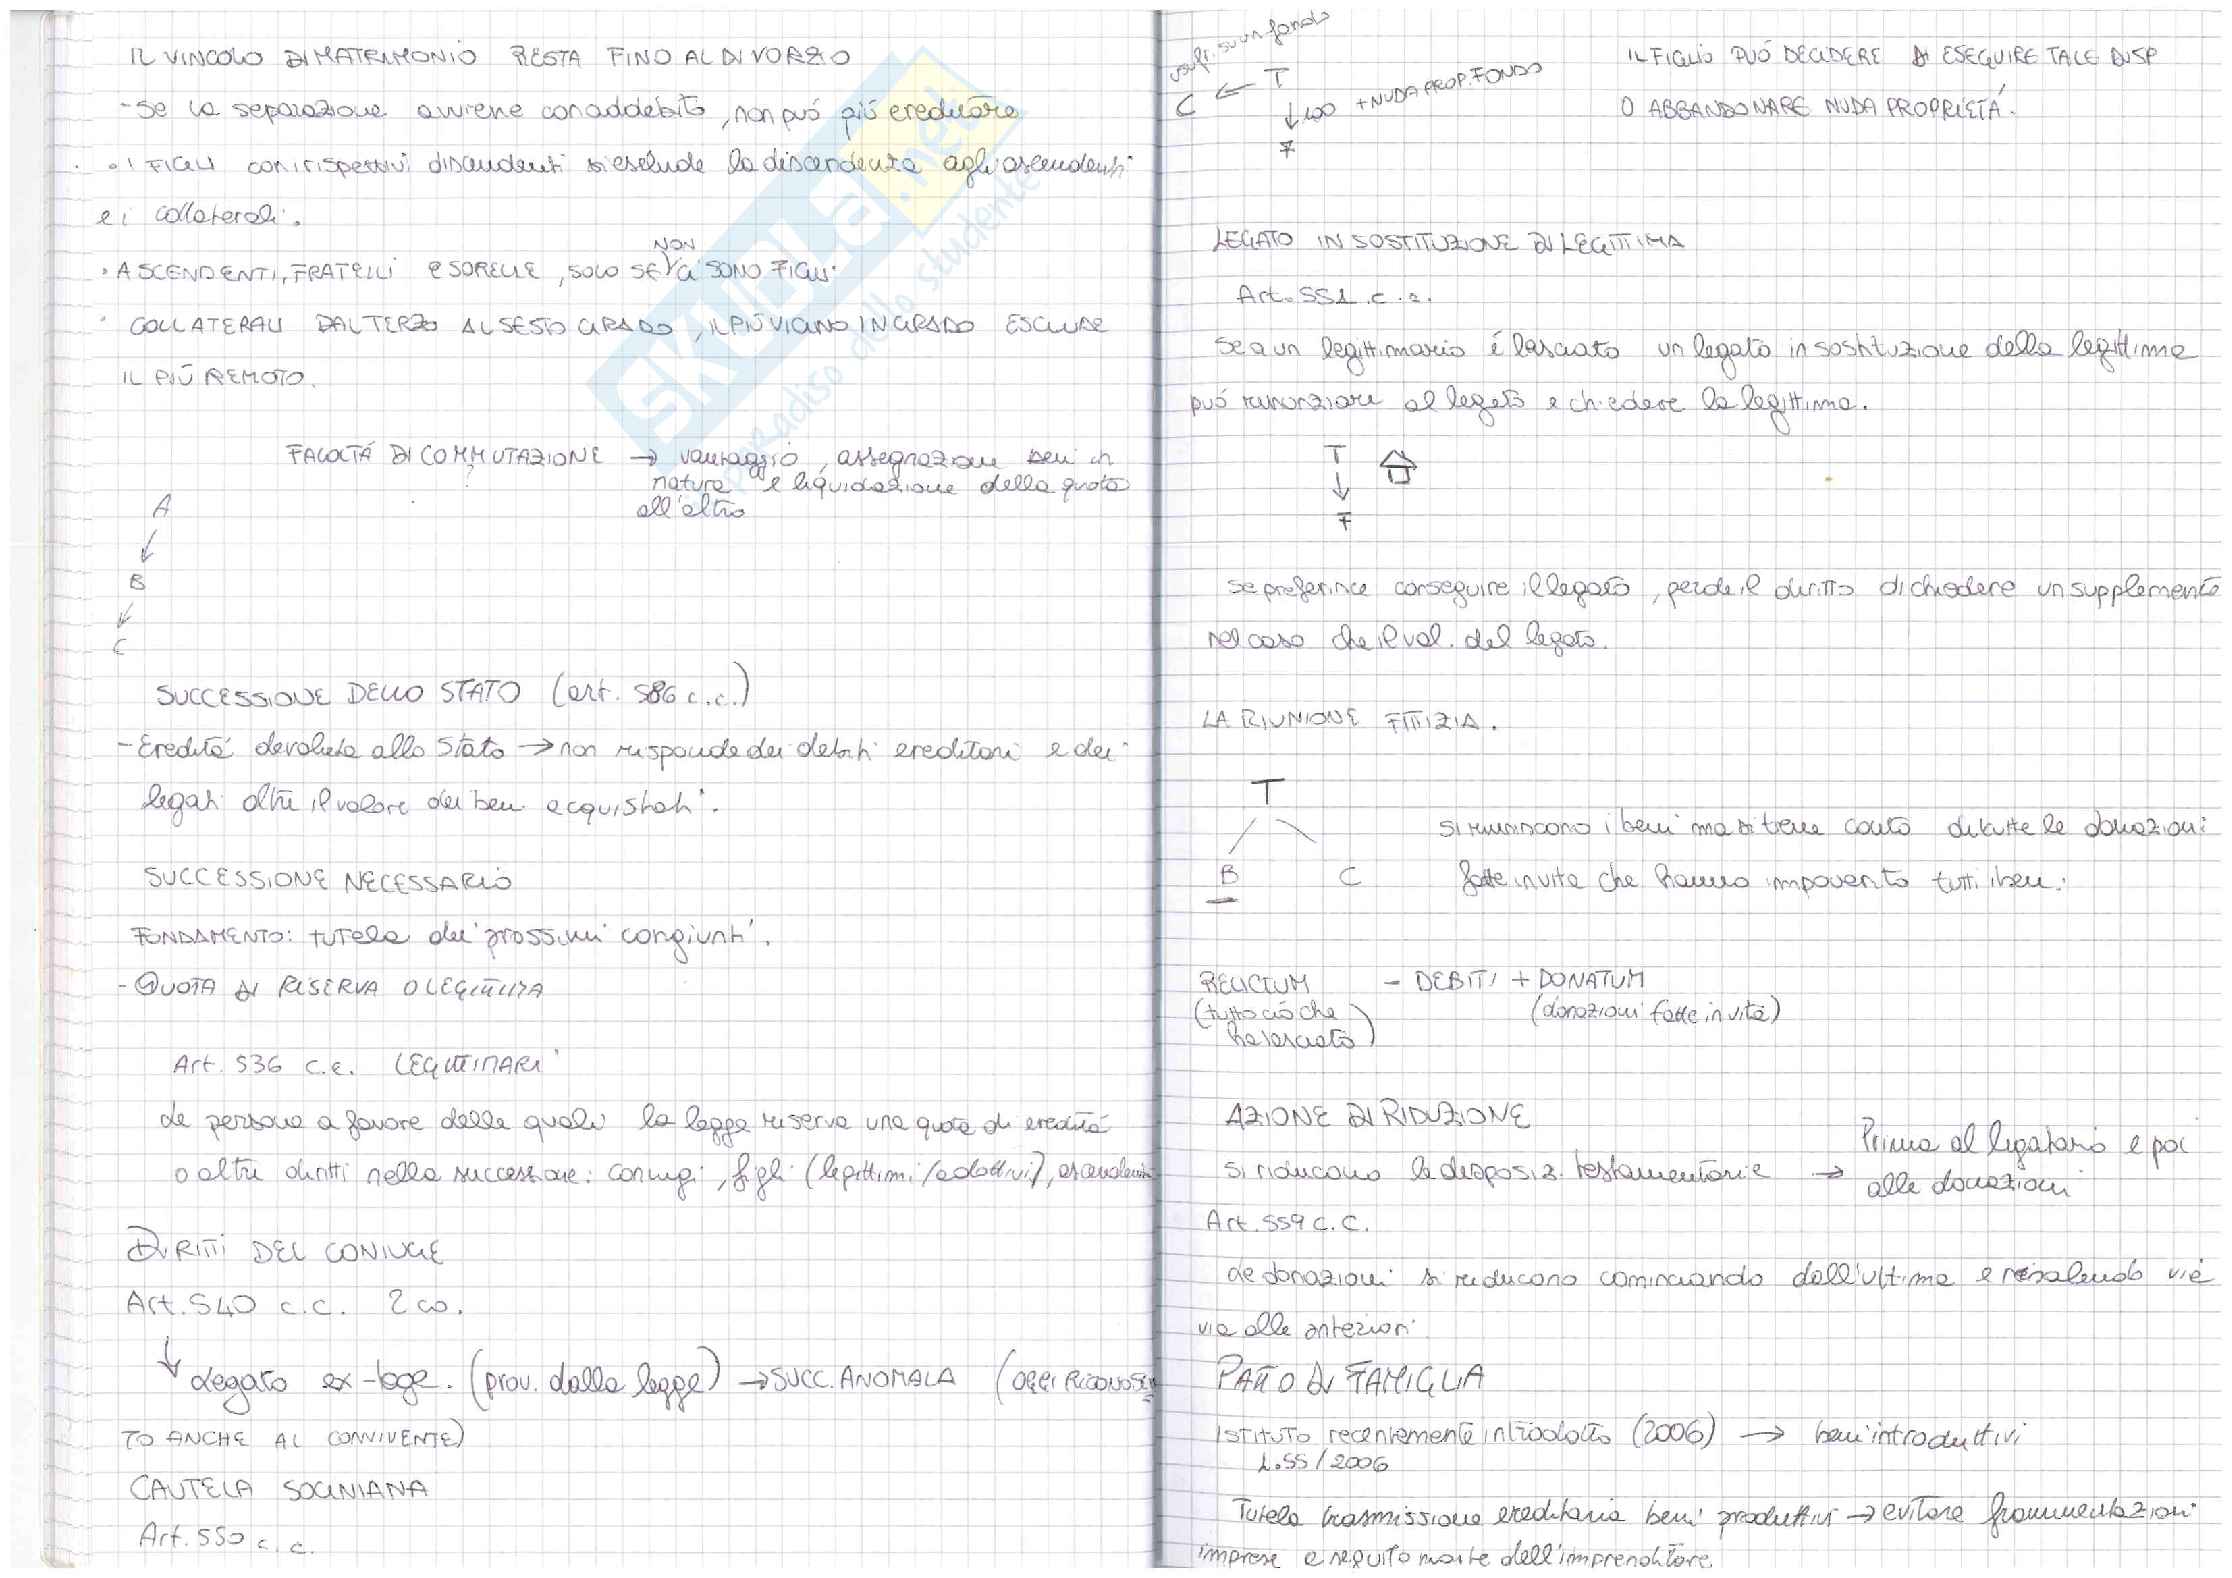 IL VINCOLO DI MATRIMONIO RESTA FINO AL DIVORZIO
- Se la separazione avviene con addebito, non può più ereditare
• I FIGLI con i rispettivi discendenti si esclude la discendenza agli ascendenti
e i collaterali.
NON
• ASCENDENTI, FRATELLI E SORELLE, SOLO SE VI SONO FIGLI.
• COLLATERALI DAL TERZO AL SESTO GRADO, IL PIÚ VICINO IN GRADO ESCLUDE
IL PIÚ REMOTO.
FACOLTÁ DI COMMUTAZIONE → vantaggio, assegnazione beni in
natura e liquidazione della quota
all'altro
A
B
C
SUCCESSIONE DELLO STATO (art. 586 c.c.)
- Eredità devoluta allo Stato → non risponde dei debiti ereditari e dei
legati oltre il valore dei beni acquistati.
SUCCESSIONE NECESSARIO
FONDAMENTO: tutela dei prossimi congiunti.
- QUOTA DI RISERVA O LEGITTIMA
Art. 536 c.c. LEGITTIMARI
Le persone a favore delle quali la legge riserva una quota di eredità
o altri diritti nella successione: coniugi, figli (legittimi/adottivi), ascendenti
DIRITTI DEL CONIUGE
Art. 540 c.c. 2 co.
↓ Legato ex-lege. (prov. dalla legge) → SUCC. ANOMALA (OGGI RICONOSCIU
TO ANCHE AL CONVIVENTE)
CAUTELA SOCINIANA
Art. 550 c.c.
usufr. su un fondo
C ← T
↓ 100 + NUDA PROP. FONDO
F
IL FIGLIO PUÓ DECIDERE DI ESEGUIRE TALE DISP
O ABBANDONARE NUDA PROPRIETÁ.
LEGATO IN SOSTITUZIONE DI LEGITTIMA
Art. 551 c.c.
Se a un legittimario é lasciato un legato in sostituzione della legittima
può rinunziare al legato e chiedere la legittima.
T
↓
F
Se preferisce conseguire il legato, perde il diritto di chiedere un supplemento
nel caso che il val. del legato.
LA RIUNIONE FITTIZIA.
T
B C
si riuniscono i beni ma si tiene conto di tutte le donazioni
fatte in vita che hanno impoverito tutti i beni.
RELICTUM - DEBITI + DONATUM
(tutto ciò che
ha lasciato)
(donazioni fatte in vita)
AZIONE DI RIDUZIONE
si riducono le disposiz. testamentarie → Prima al legatario e poi
alle donazioni
Art. 559 c.c.
Le donazioni si riducono cominciando dall'ultima e risalendo via
via alle anteriori.
PATTO DI FAMIGLIA
ISTITUTO recentemente introdotto (2006) → beni introduttivi
L. 55/2006
Tutela trasmissione ereditaria beni produttivi → evitare frammentazioni
imprese a seguito morte dell'imprenditore
SKUOLA.net
il paradiso dello studente